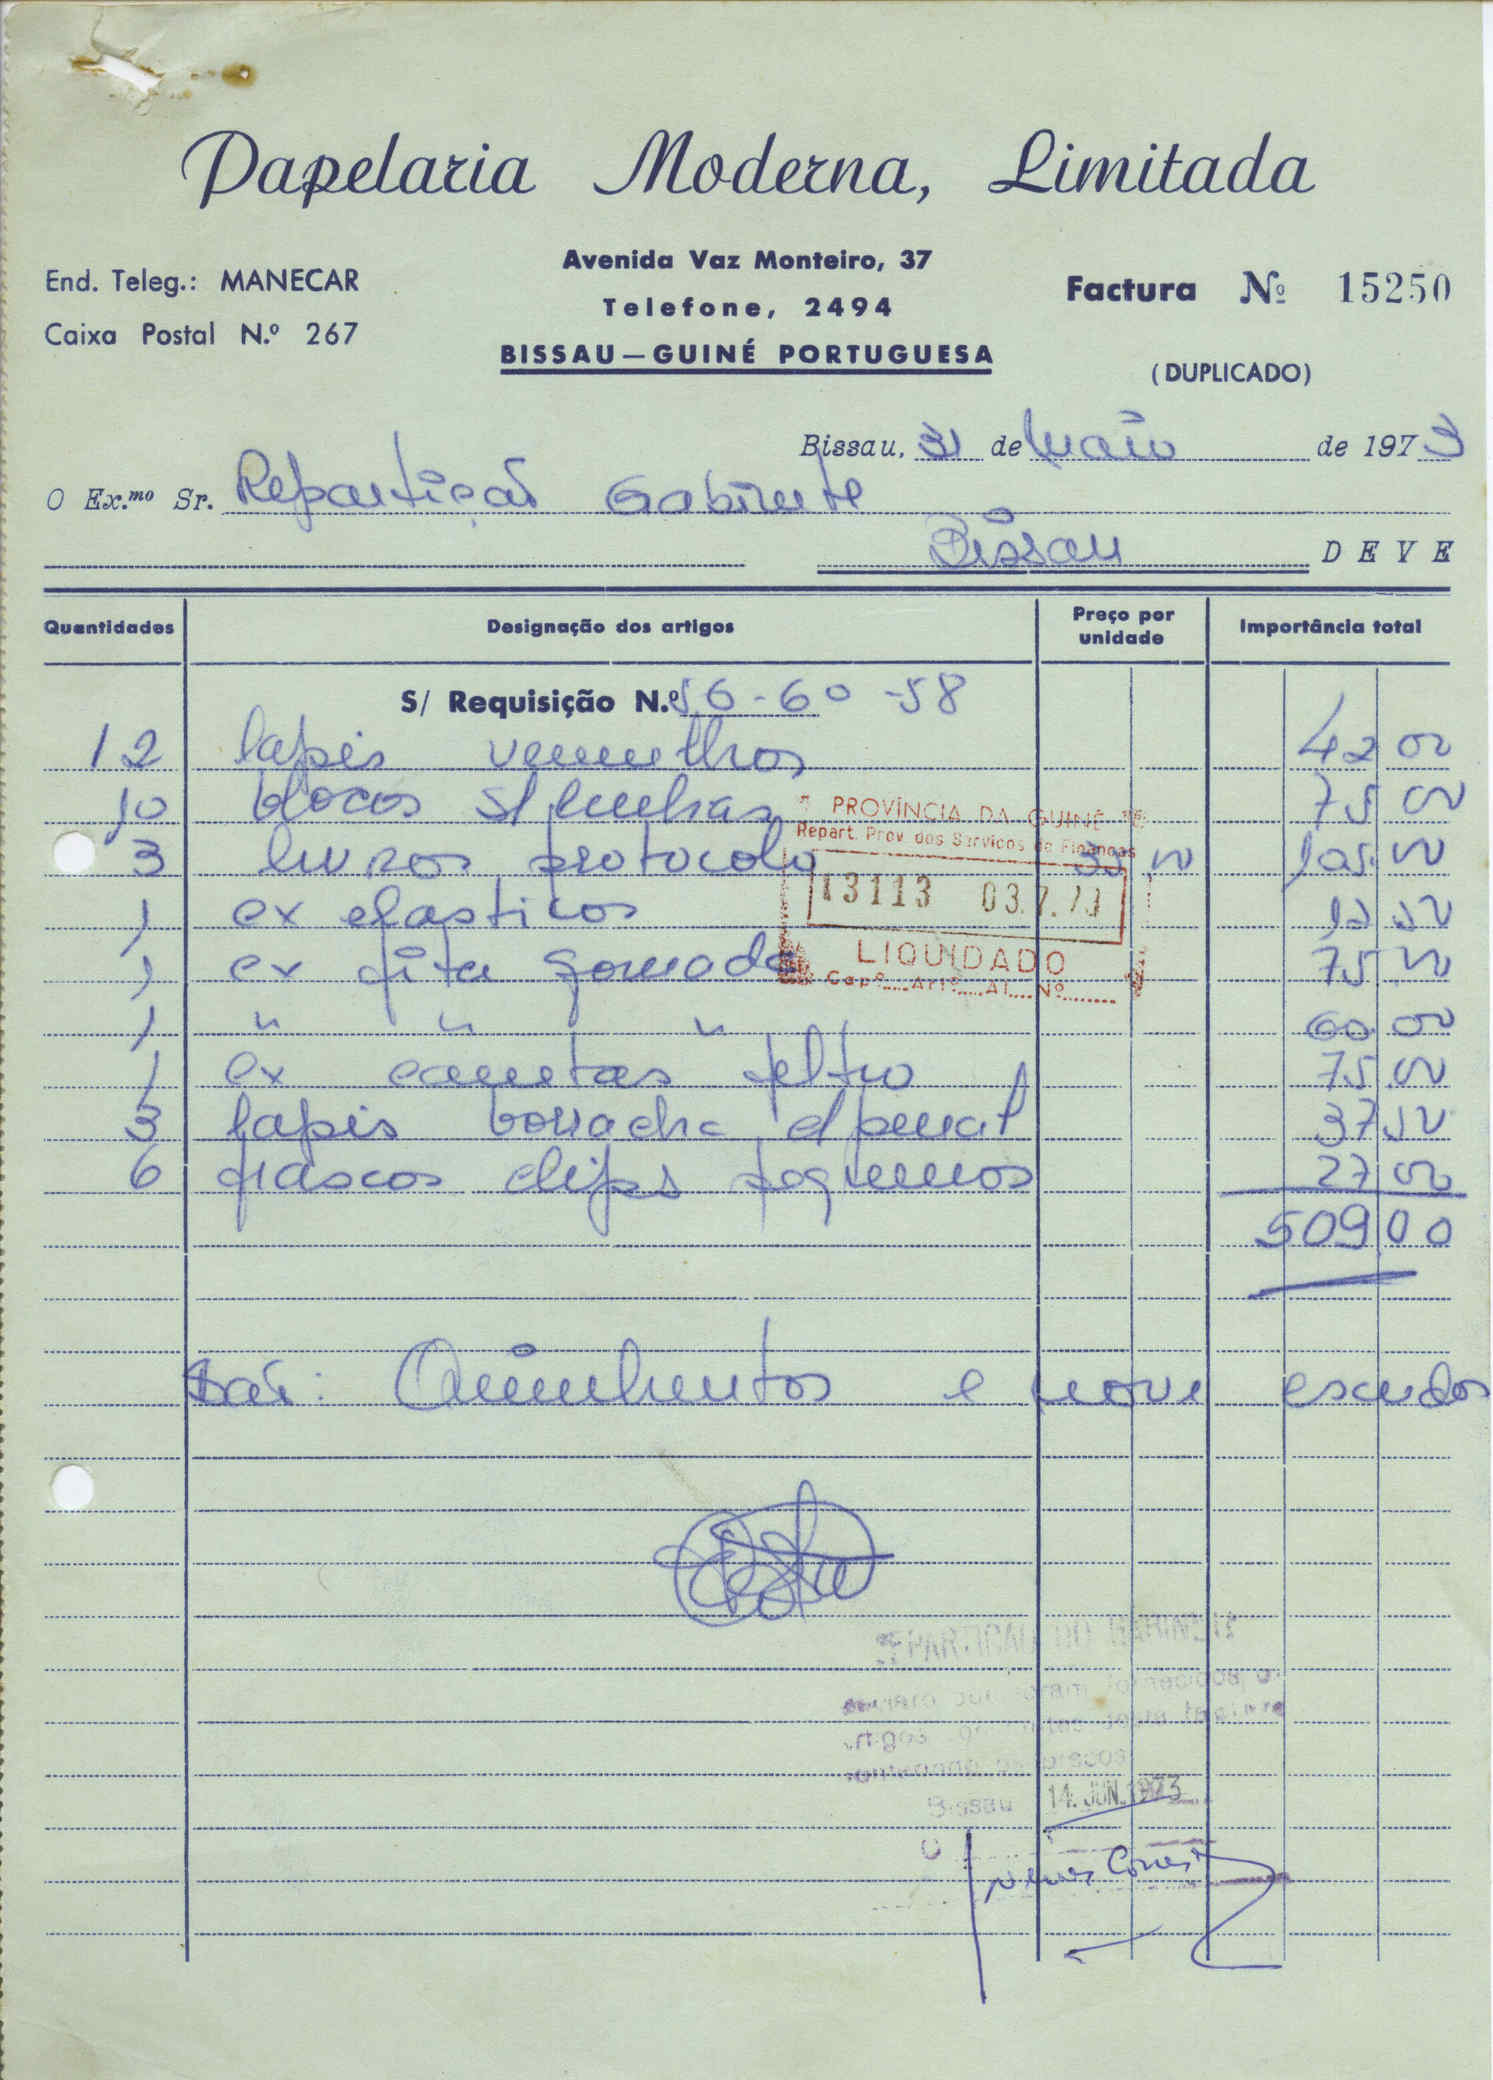 Papelaria Moderna, Limitada
End. Teleg.: MANECAR
Caixa Postal N.º 267
Avenida Vaz Monteiro, 37
Telefone, 2494
BISSAU—GUINÉ PORTUGUESA
Factura Nº 15250
(DUPLICADO)
Bissau, 31 de Maio de 1973
O Ex.mo Sr. Repartição Gabinete
Bissau DEVE
Quantidades Designação dos artigos Preço por unidade Importância total
S/ Requisição N.º 56-60-58
12 lapis vermelhos 42 00
10 blocos s/ linhas 75 00
3 livros protocolo 35 00 105 00
1 cx elasticos 12 50
1 cx fita gomada 75 00
1 " " " 60 00
1 cx canetas feltro 75 00
3 lapis borracha 37 50
6 frascos clips pequenos 27 00
509 00
PROVÍNCIA DA GUINÉ
Repart. Prov. dos Serviços de Finanças
13113 03.7.73
LIQUIDADO
Cap.º Art.º Al. Nº
São: Quinhentos e nove escudos
REPARTIÇÃO DO GABINETE
Bissau 14. JUN. 1973
O